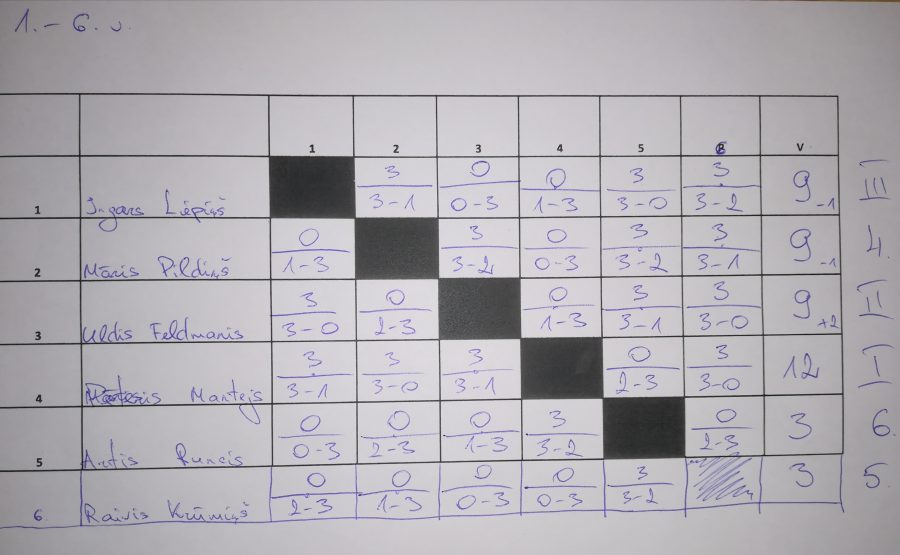 1. - 6. v.
1 2 3 4 5 6 V
1 Ingars Liepiņš 3 3-1 0 0-3 0 1-3 3 3-0 3 3-2 9 -1 III
2 Māris Pildiņš 0 1-3 3 3-2 0 0-3 3 3-2 3 3-1 9 -1 4.
3 Uldis Feldmanis 3 3-0 0 2-3 0 1-3 3 3-1 3 3-0 9 +2 II
4 Mantejs 3 3-1 3 3-0 3 3-1 0 2-3 3 3-0 12 I
5 Artis Runcis 0 0-3 0 2-3 0 1-3 3 3-2 0 2-3 3 6.
6. Raivis Krūmiņš 0 2-3 0 1-3 0 0-3 0 0-3 3 3-2 3 5.